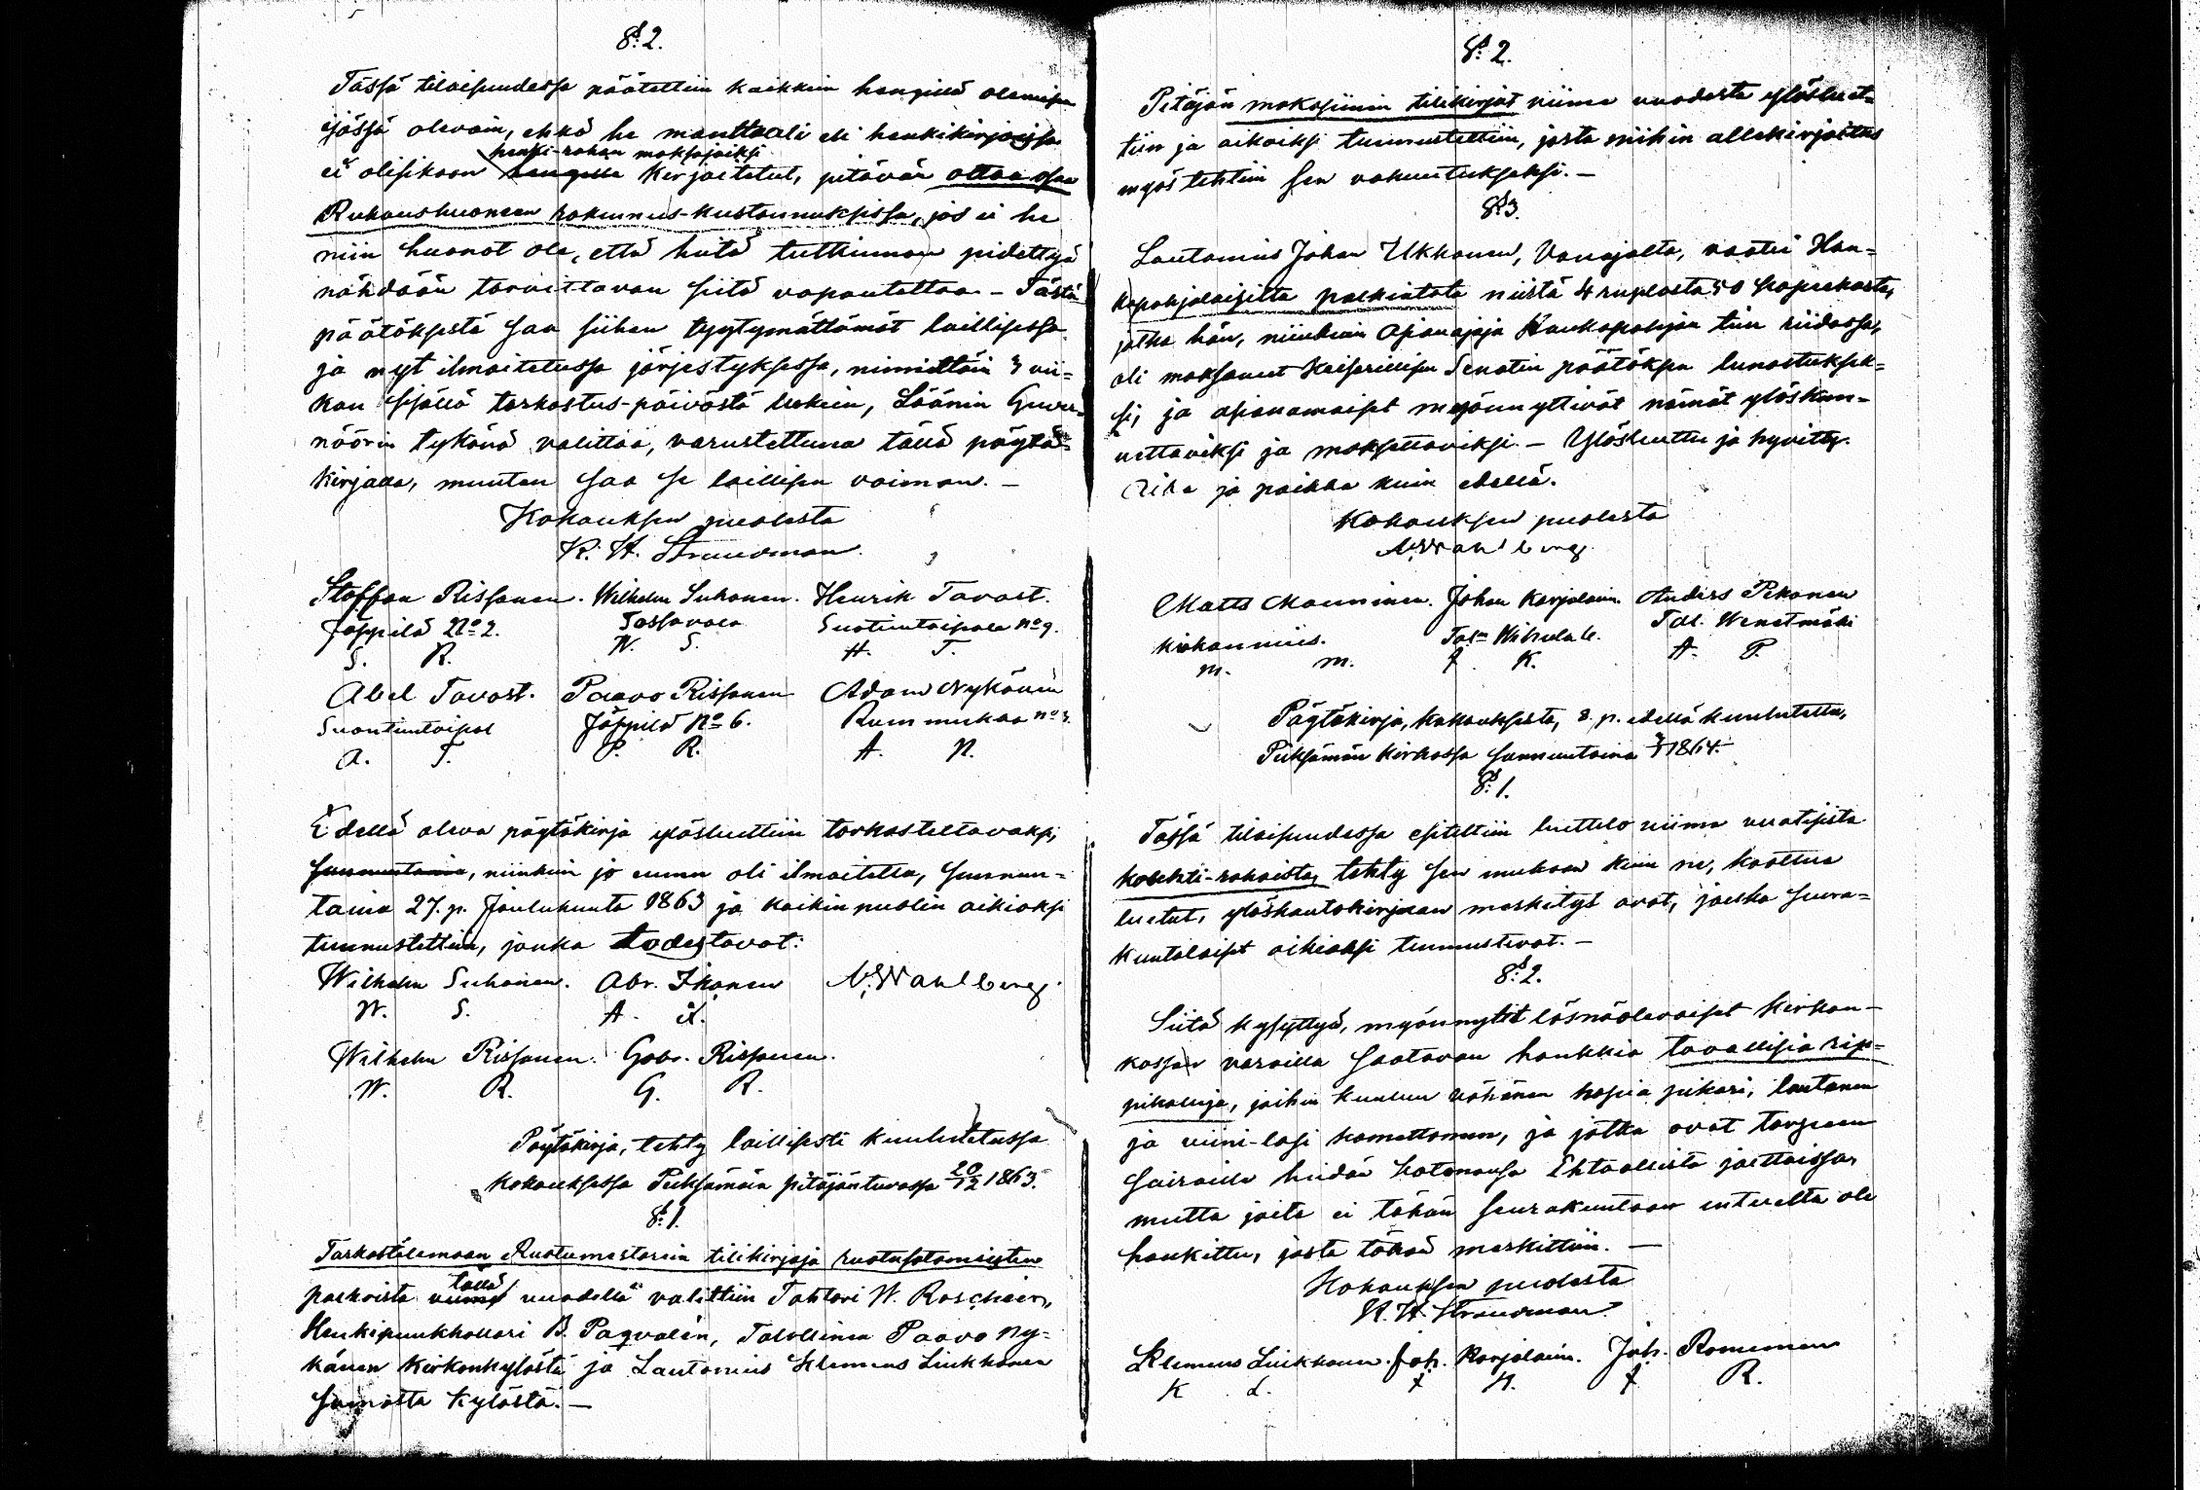 § 2.
Tässä tilaisuudessa päätettiin kaikkein hengissä olemisen
ijässä olevain, ehkä he manttaali eli henkikirjoissa
henki-rahan maksajaiksi
ei olisikaan kirjoitetut, pitävän ottaa osaa
Ruhoushuoneen rakennus-kustannuksissa, jos ei he
niin huonot ole, että heitä tutkinnon pidettyä
nähdään tarvittavan siitä vapautettaa – Tästä
päätöksestä saa siihen tyytymättömät laillisessa
ja nyt ilmoitetussa järjestyksessä, nimittäin 3 vii-
kon sisällä tarkastus-päivästä lukein, Läänin Guver-
nöörin tykönä valittaa, varustettuna tällä pöytä-
kirjalla, muuten saa se laillisen voiman. –
Kokouksen puolesta
K. H. Strandman.
Staffan Rissanen. Wilhelm Suhonen. Henrik Tavast.
Jäppilä No 2. Tossavala Suontientaipale No 9.
S. R. W. S. H. T.
Abel Tavast. Paavo Rissanen Adam Nykänen
Suontientaipal Jäppilä No 6. Rummukka No 3.
A. T. P. R. A. N.
Edellä oleva pöytäkirja ylösluettiin tarkasteltavaksi,
sunnuntaina, niinkuin jo ennen oli ilmoitettu, sunnun-
taina 27. p. Joulukuuta 1863 ja kaikin puolin oikiaksi
tunnustettiin, jonka todistavat:
Wilhelm Suhonen. Abr. Ikonen N. Wahlberg.
W. S. A. I.
Wilhelm Rissanen. Gabr. Rissanen.
W. R. G. R.
Pöytäkirja, tehty laillisesti kuulutetussa
kokouksessa Pieksämäin pitäjäntuvassa 20/12 1863.
§ 1.
Tarkastelemaan Ruotumestarin tilikirjoja ruotusotamiesten
tällä
palkoista viime vuodella valittiin Tohtori W. Roschier,
Henkipuukhollari B. Pagvalin, Talollinen Paavo Ny-
känen Kirkonkylästä ja Lautamies Klemens Liukkonen
samasta kylästä. –
§ 2.
Pitäjän makasiinin tilikirjat viime vuodesta ylösluet-
tiin ja oikiaksi tunnustettiin, josta niihin allekirjoitus
myös tehtiin sen vakuutukseksi. –
§ 3.
Lautamies Johan Ukkonen, Vanajalta, vaatei Han-
kapohjalaisilta palkintota niistä 4 ruplasta 50 kopeekasta,
jotka hän, niinkuin Asianajaja Haukapohjan tien riidassa,
oli maksanut Keisarillisen Senatin päätöksen lunastuksek-
si, ja asianomaiset myönnyttivät nämät ylöskan-
nettaviksi ja maksettaviksi. – Ylösluettu ja hyvitty.
Aika ja paikka kuin edellä.
Kokouksen puolesta
N. Wahlberg.
Matts Manninen. Johan Karjalain. Anders Pekonen
kirkonmies. Tal. Wenetmäki
m. m. J. K. A. P.
Pöytäkirja, kokouksesta, s. p. edellä kuulutettu,
Pieksämän Kirkossa sunnuntaina 1864.
§ 1.
Tässä tilaisuudessa esiteltiin luettelo viime vuotisista
kolehti-rahoista, tehty sen mukaan kuin ne, koottua
luetut, ylöskantokirjaan merkityt ovat, jonka seura-
kuntalaiset oikiaksi tunnustivat. –
§ 2.
Siitä kysyttyä, myönnytit läsnäolevaiset Kirkon-
kassan varoilla saatavan hankkia tavallisia rip-
pikaluja, joihin kuuluu vähänen hopia pikari, lautanen
ja viini-lasi hamettomen, ja jotka ovat tarpeen
sairaille heidän kotonansa Ehtoollista jaettaissa,
mutta joita ei tähän seurakuntaan entuelta ole
hankittu, josta tähän merkittiin. –
Kokouksen puolesta
K. H. Strandman
Klemens Liukkonen. Joh. Karjalain. Joh. Romunen
K L. J K. J R.